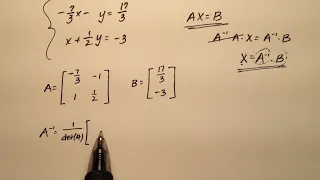 -7/3 x - y = 17/3
x + 1/2 y = -3
AX = B
A⁻¹ A · X = A⁻¹ · B
X = A⁻¹ · B
A = [ -7/3 -1
1 1/2 ]
B = [ 17/3
-3 ]
A⁻¹ = 1/det(A) [